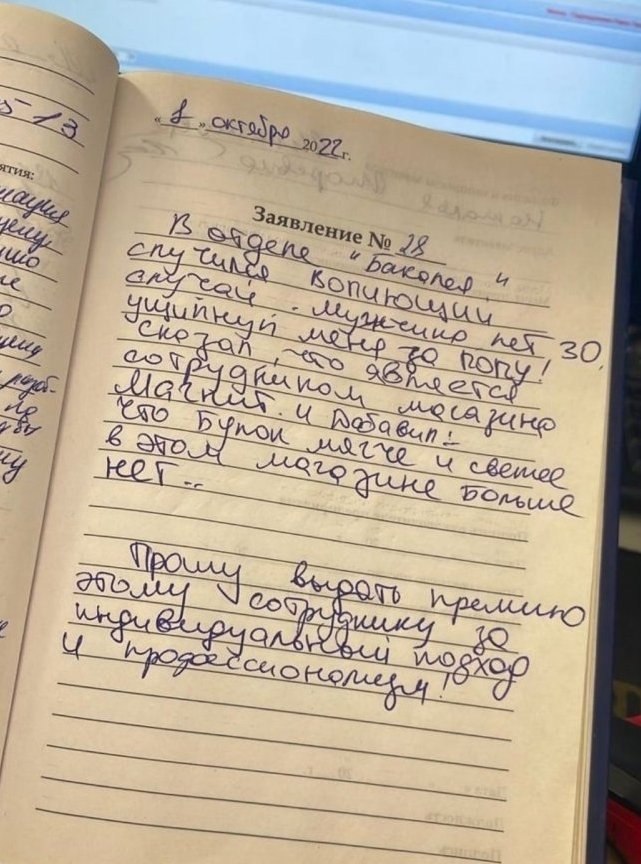 5-13
ятия:
« 8 » октября 2022 г.
Заявление № 28
В отделе "Бакалея"
случился вопиющий
случай. Мужчина лет 30,
ущипнул меня за попу!
сказал, что является
сотрудником магазина
Магнит. и добавил:
что Булок мягче и свежее
в этом магазине больше
нет..
Прошу выдать премию
этому сотруднику за
индивидуальный подход
и профессионализм!